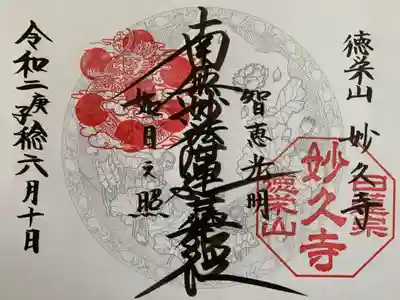 徳栄山 妙久寺
智恵光明
南無妙法蓮華経
如日之照
令和二庚子稔六月十日
日蓮宗
妙久寺
徳栄山